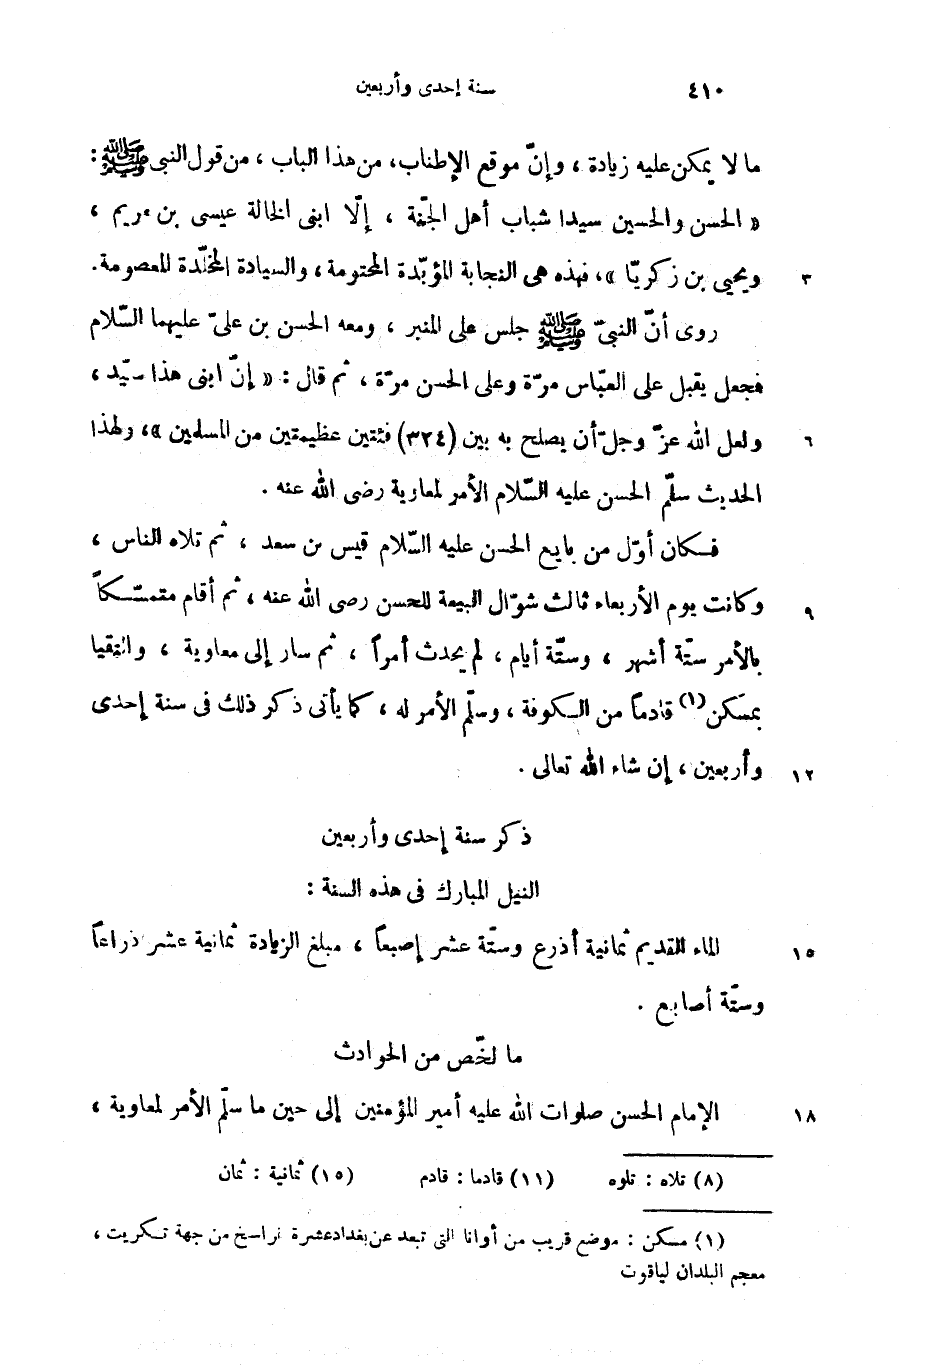 ٤١٠ سنة إحدى وأربعين
ما لا يمكن عليه زيادة ، وإنّ موقع الإطناب، من هذا الباب ، من قول النبى ﷺ :
« الحسن والحسين سيدا شباب أهل الجنّة ، إلّا ابنى الخالة عيسى بن مريم ،
٣ ويحيى بن زكريّا »، فهذه هى النجابة المؤبّدة المحتومة ، والسيادة المخلّدة المعصومة.
روى أنّ النبىّ ﷺ جلس على المنبر ، ومعه الحسن بن علىّ عليهما السّلام
فجعل يقبل على العبّاس مرّة وعلى الحسن مرّة ، ثم قال : « إنّ ابنى هذا سيّد ،
٦ ولعل الله عزّ وجلّ أن يصلح به بين (٣٢٤) فئتين عظيمتين من المسلمين »، ولهذا
الحديث سلّم الحسن عليه السّلام الأمر لمعاوية رضى الله عنه .
فكان أوّل من بايع الحسن عليه السّلام قيس بن سعد ، ثم تلاه الناس ،
٩ وكانت يوم الأربعاء ثالث شوّال البيعة للحسن رضى الله عنه ، ثم أقام متمسّكاً
بالأمر ستّة أشهر ، وستّة أيام ، لم يحدث أمراً ، ثم سار إلى معاوية ، والتقيا
بمَسكن(١) قادماً من الكوفة ، وسلّم الأمر له ، كما يأتى ذكر ذلك فى سنة إحدى
١٢ وأربعين ، إن شاء الله تعالى .
ذكر سنة إحدى وأربعين
النيل المبارك فى هذه السنة :
١٥ الماء القديم ثمانية أذرع وستّة عشر إصبعاً ، مبلغ الزيادة ثمانية عشر ذراعاً
وستّة أصابع .
ما لخّص من الحوادث
١٨ الإمام الحسن صلوات الله عليه أمير المؤمنين إلى حين ما سلّم الأمر لمعاوية ،
(٨) تلاه : تلوه (١١) قادما : قادم (١٥) ثمانية : ثمان
(١) مسكن : موضع قريب من أوانا التى تبعد عن بغداد عشرة فراسخ من جهة تكريت ،
معجم البلدان لياقوت